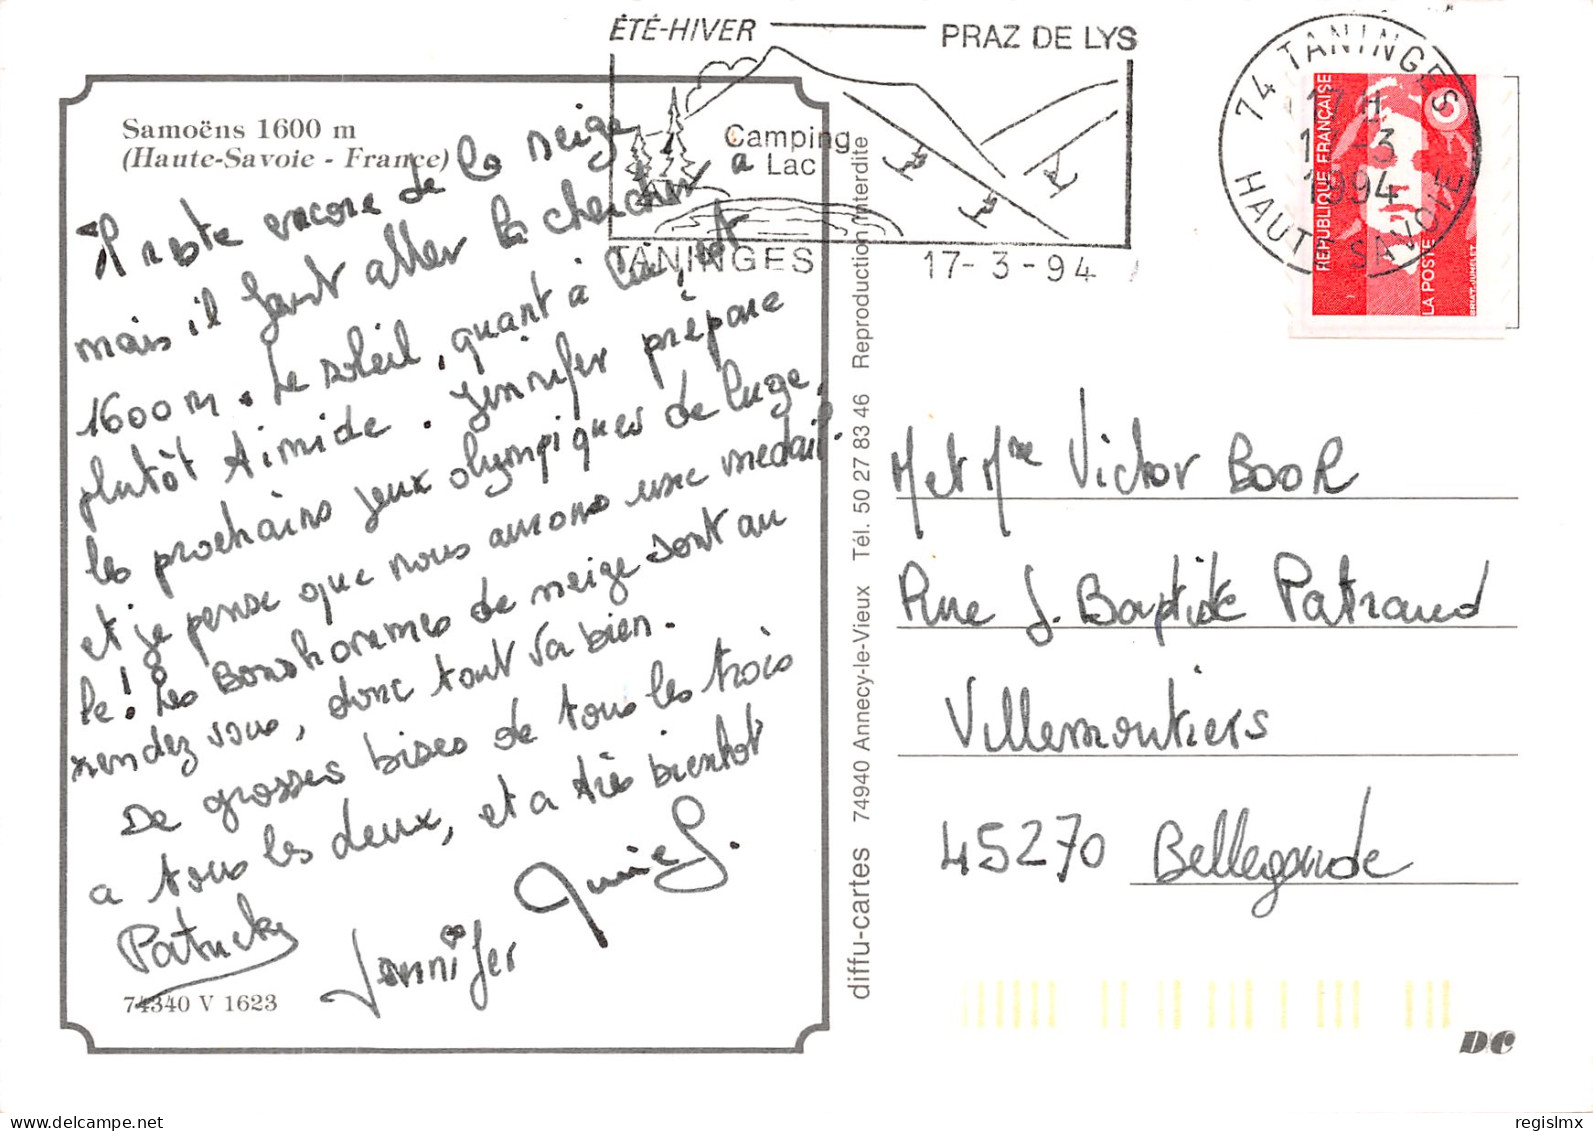 ÉTÉ-HIVER PRAZ DE LYS
Camping
a Lac
TANINGES 17-3-94
74 TANINGES
17 H
17-3
1994
HAUTE SAVOIE
REPUBLIQUE FRANÇAISE
LA POSTE
BRIAT-JUMELET
Samoëns 1600 m
(Haute-Savoie - France)
Il reste encore de la neige
mais il faut aller la chercher à
1600 m. Le soleil, quant à lui, est
plutôt timide. Jennifer prépare
les prochains jeux olympiques de luge,
et je pense que nous aurons une medail-
le! Les Bonshommes de neige sont au
rendez vous, donc tout va bien.
De grosses bises de tous les trois
a tous les deux, et a très bientôt
Patrick
Jennifer
74340 V 1623
diffu-cartes 74940 Annecy-le-Vieux Tél. 50 27 83 46 Reproduction interdite
M et Mme Victor BOOR
Rue J. Baptiste Patraud
Villemoutiers
45270 Bellegarde
DC
regislmx